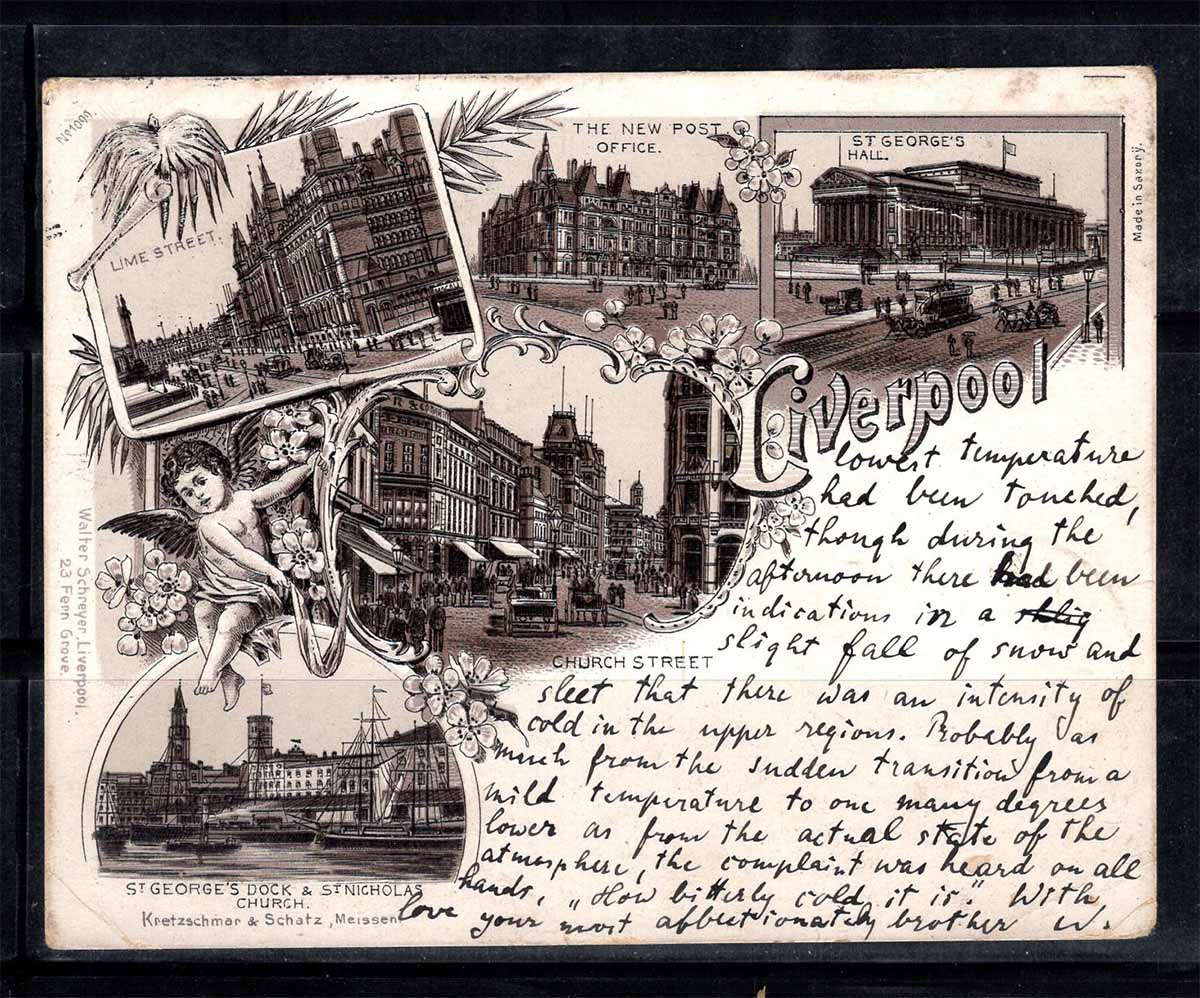 No 1099
LIME STREET.
THE NEW POST
OFFICE.
ST GEORGE'S
HALL.
Made in Saxony.
Liverpool
CHURCH STREET
Walter Schreyer, Liverpool.
23 Fern Grove.
ST GEORGE'S DOCK & ST NICHOLAS
CHURCH.
Kretzschmar & Schatz, Meissen
lowest temperature
had been touched,
though during the
afternoon there had been
indications in a shlig
slight fall of snow and
sleet that there was an intensity of
cold in the upper regions. Probably as
much from the sudden transition from a
mild temperature to one many degrees
lower as from the actual state of the
atmosphere, the complaint was heard on all
hands, „How bitterly cold it is." With
love your most affectionately brother W.